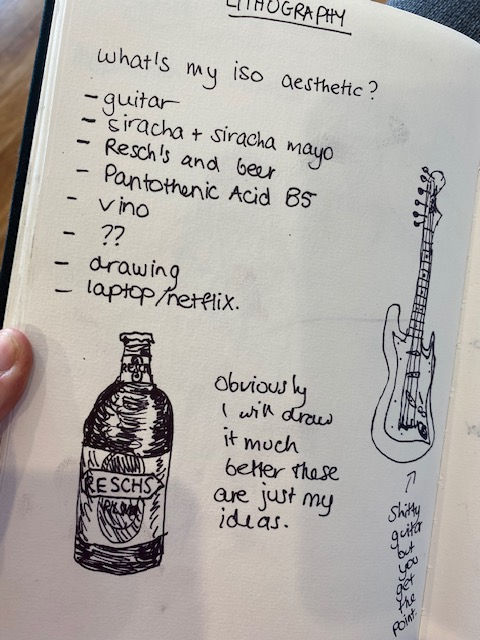 LITHOGRAPHY
what's my iso aesthetic?
- guitar
- siracha + siracha mayo
- Resch's and beer
- Pantothenic Acid B5
- vino
- ??
- drawing
- laptop/netflix.
RESCHS
Obviously
I will draw
it much
better these
are just my
ideas.
Shitty
guitar
but
you
get
the
point.